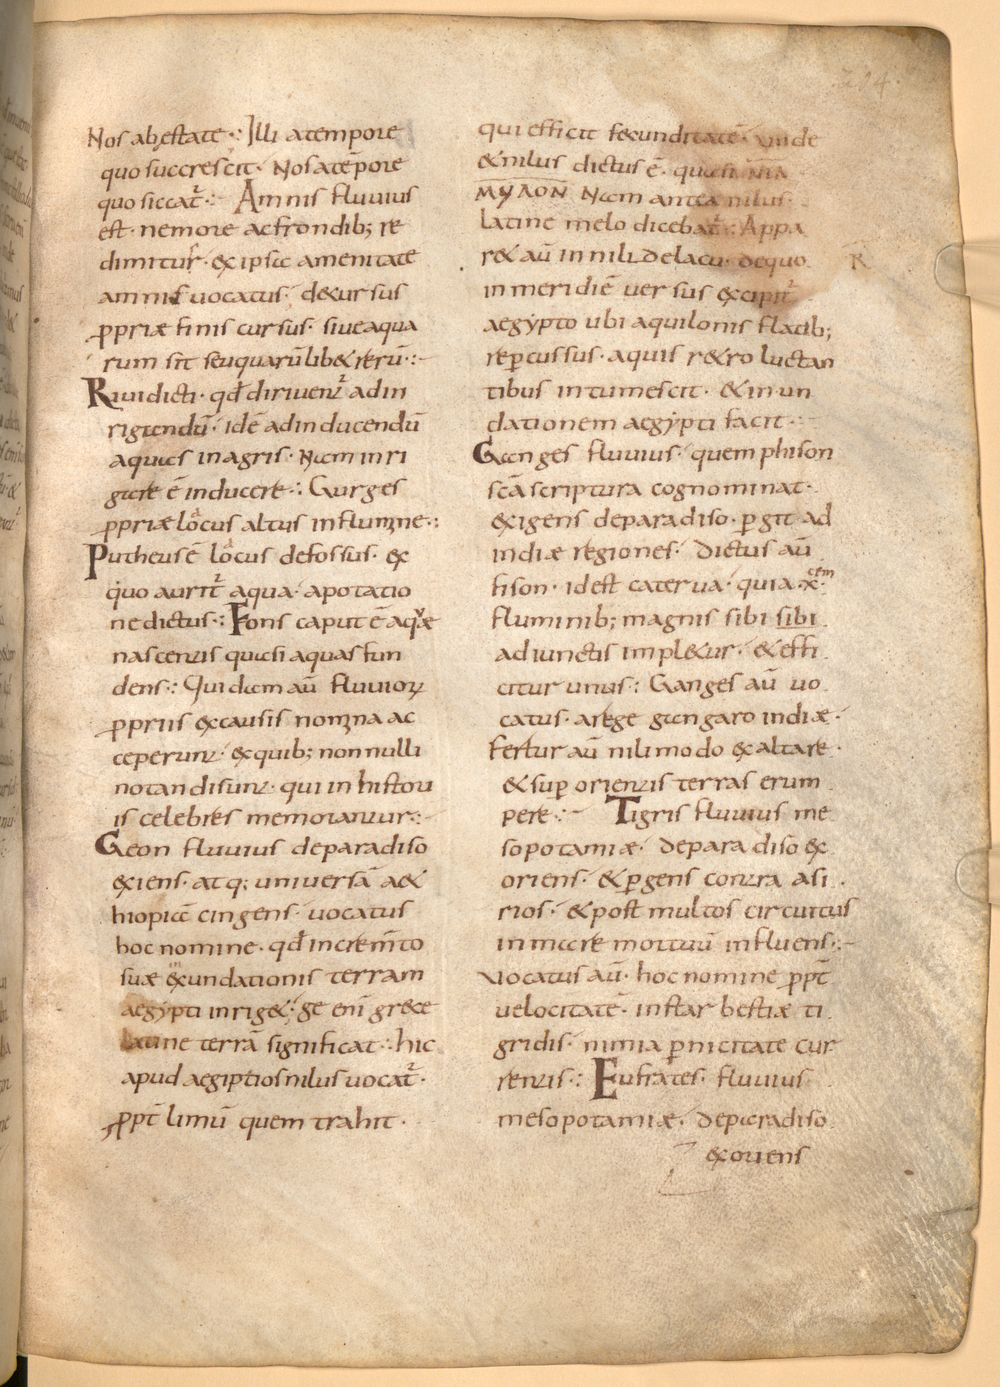 Nos ab estate·: Illi a tempore
quo succrescit· Nos a tēpore
quo siccat̄·: Amnis fluuius
est· nemore ac frondib; re
dimitur· & ipsa amenitate
amnis uocatus· decursus
ꝓpriæ finis cursus· siue aqua
rum sit seu quarūlib& rerū·:-
Riui dicti· qđ diriuent̄ ad in
rigandū· idē ad inducendū
aquas in agris· Nam inri
gare ē inducere·: Gurges
ꝓpriæ locus altus in flumine·:
Putheus ē locus defossus· ex
quo aurit̄ aqua· a potatio
ne dictus·: Fons caput ē aquæ
nascentis quasi aquas fun
dens·: Quidam aū fluuioꝝ
ꝓpriis ex causis nomina ac
ceperunt· ex quib; non nulli
notandi sunt· qui in histori
is celebres memorantur·:-
Geon fluuius de paradiso
exiens· atq; uniuersā a&
hiopia cingens· uocatus
hoc nomine· qđ incremto
suæ exundationis terram
aegypti inrig&· ge enī grece
latine terrā significat·: hic
apud aegiptios nilus uocat̄·
ꝓpt̄ limū quem trahit·
204·
qui efficit fecunditatē· unde
& nilus dictus ē· quasi NIA
ΜΥΛΟΝ Nam antea nilus·
latine melo dicebat̄·: Appa
r& aū in nili de lacu· de quo
R
in meridiē uersus excipit̄
aegypto ubi aquilonis flatib;
repercussus· aquis r&ro luctan
tibus intumescit· & inun
dationem aegypti facit·:-
Ganges fluuius· quem phison
scā scriptura cognominat·
exigens de paradiso· ꝑgit ad
indiæ regiones· Dictus aū
fison· id est caterua· quia x̄·cem
fluminib; magnis sibi sibi
adiunctis impl&ur· & effi
citur unus·: Ganges aū uo
catus· a rege gangaro indiæ·
Fertur aū nili modo exaltare·
& suꝑ orientis terras erum
pere·:- Tigris fluuius me
sopotamiæ· de paradiso ex
oriens· & ꝑgens contra asi
rios· & post multos circuitus
in mare mortuū influens·:-
Vocatus aū· hoc nomine ꝓpt̄
uelocitatē· instar bestiæ ti
gridis· nimia ꝑnicitate cur
rentis·: Eufrates· fluuius
mesopotamiæ· de paradiso
exoriens